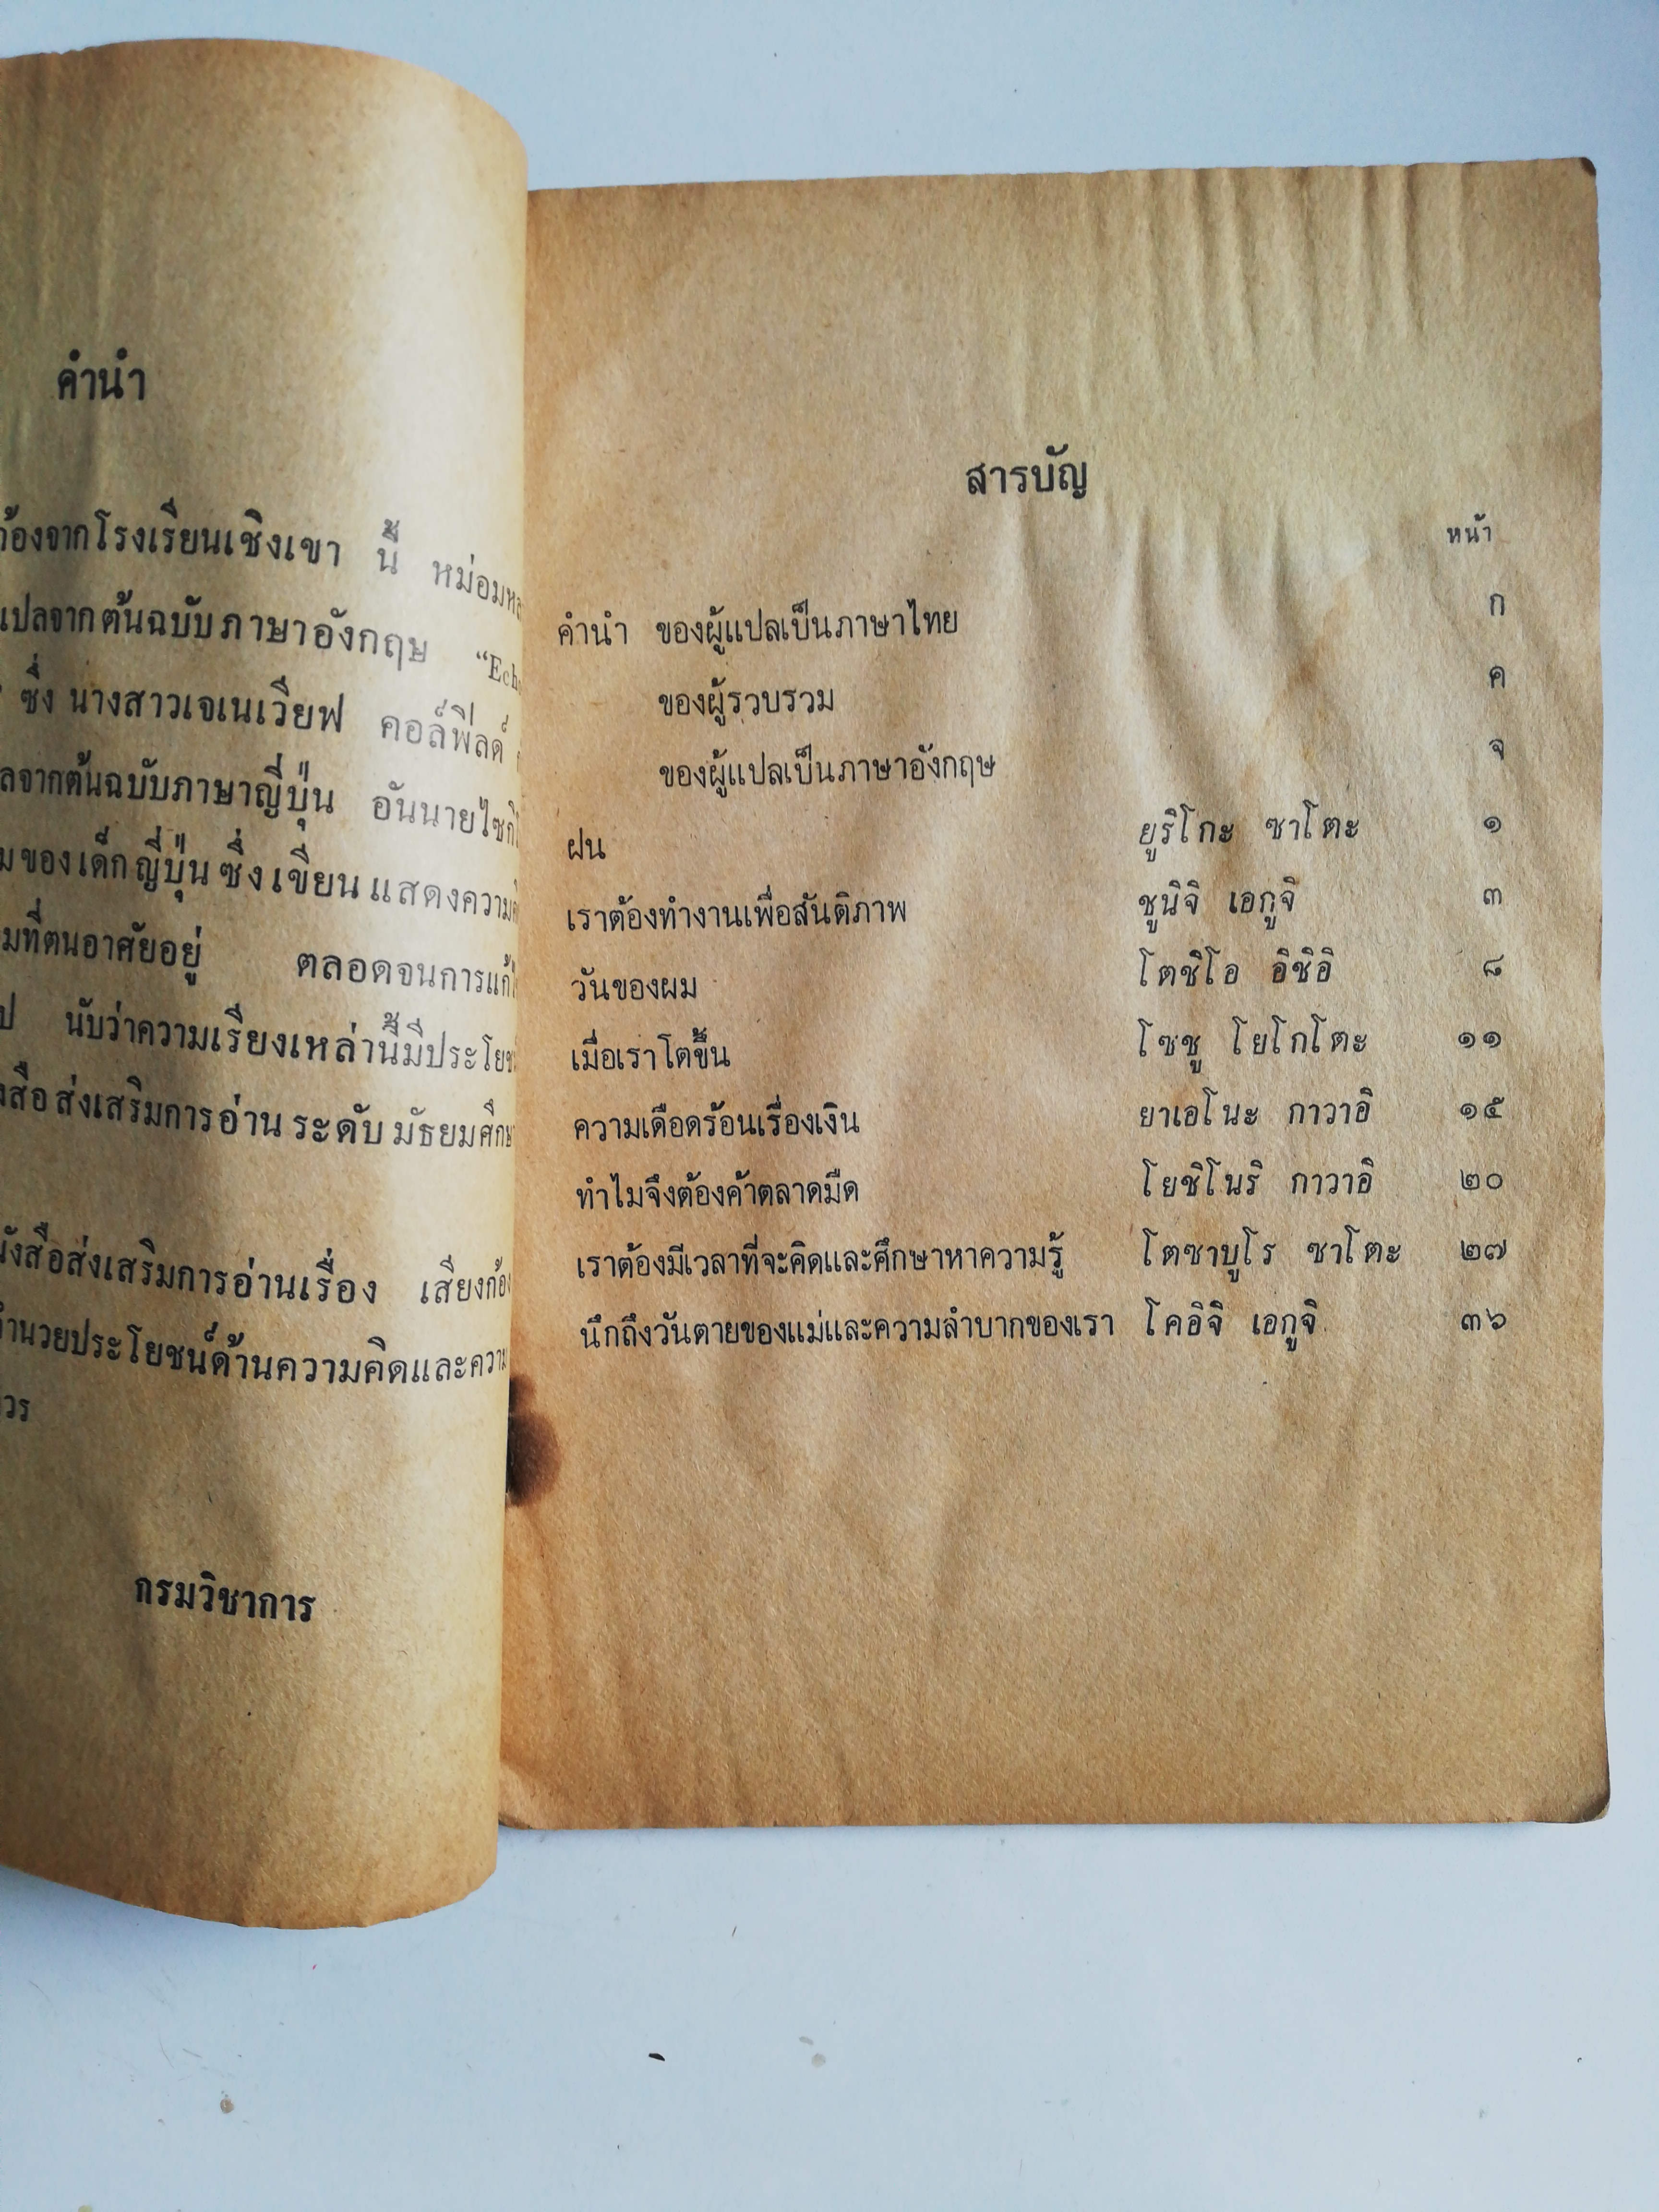 คำนำ
ก้องจากโรงเรียนเชิงเขา นี้ หม่อมห
แปลจากต้นฉบับภาษาอังกฤษ “Echo
ซึ่ง นางสาวเจเนเวียฟ คอล์ฟีลด์
ลจากต้นฉบับภาษาญี่ปุ่น อันนายไซกิ
มของเด็กญี่ปุ่น ซึ่งเขียนแสดงความ
มที่ตนอาศัยอยู่ ตลอดจนการแก้
ป นับว่าความเรียงเหล่านี้มีประโยช
งสือส่งเสริมการอ่าน ระดับ มัธยมศึกษ
นังสือส่งเสริมการอ่านเรื่อง เสียงก้อง
อำนวยประโยชน์ด้านความคิดและความ
วร
กรมวิชาการ
สารบัญ
หน้า
คำนำ ของผู้แปลเป็นภาษาไทย ก
ของผู้รวบรวม ค
ของผู้แปลเป็นภาษาอังกฤษ จ
ฝน ยูริโกะ ซาโตะ ๑
เราต้องทำงานเพื่อสันติภาพ ชูนิจิ เอกูจิ ๓
วันของผม โตชิโอ อิชิอิ ๘
เมื่อเราโตขึ้น โซชู โยโกโตะ ๑๑
ความเดือดร้อนเรื่องเงิน ยาเอโนะ กาวาอิ ๑๕
ทำไมจึงต้องค้าตลาดมืด โยชิโนริ กาวาอิ ๒๐
เราต้องมีเวลาที่จะคิดและศึกษาหาความรู้ โตซาบูโร ซาโตะ ๒๗
นึกถึงวันตายของแม่และความลำบากของเรา โคอิจิ เอกูจิ ๓๖